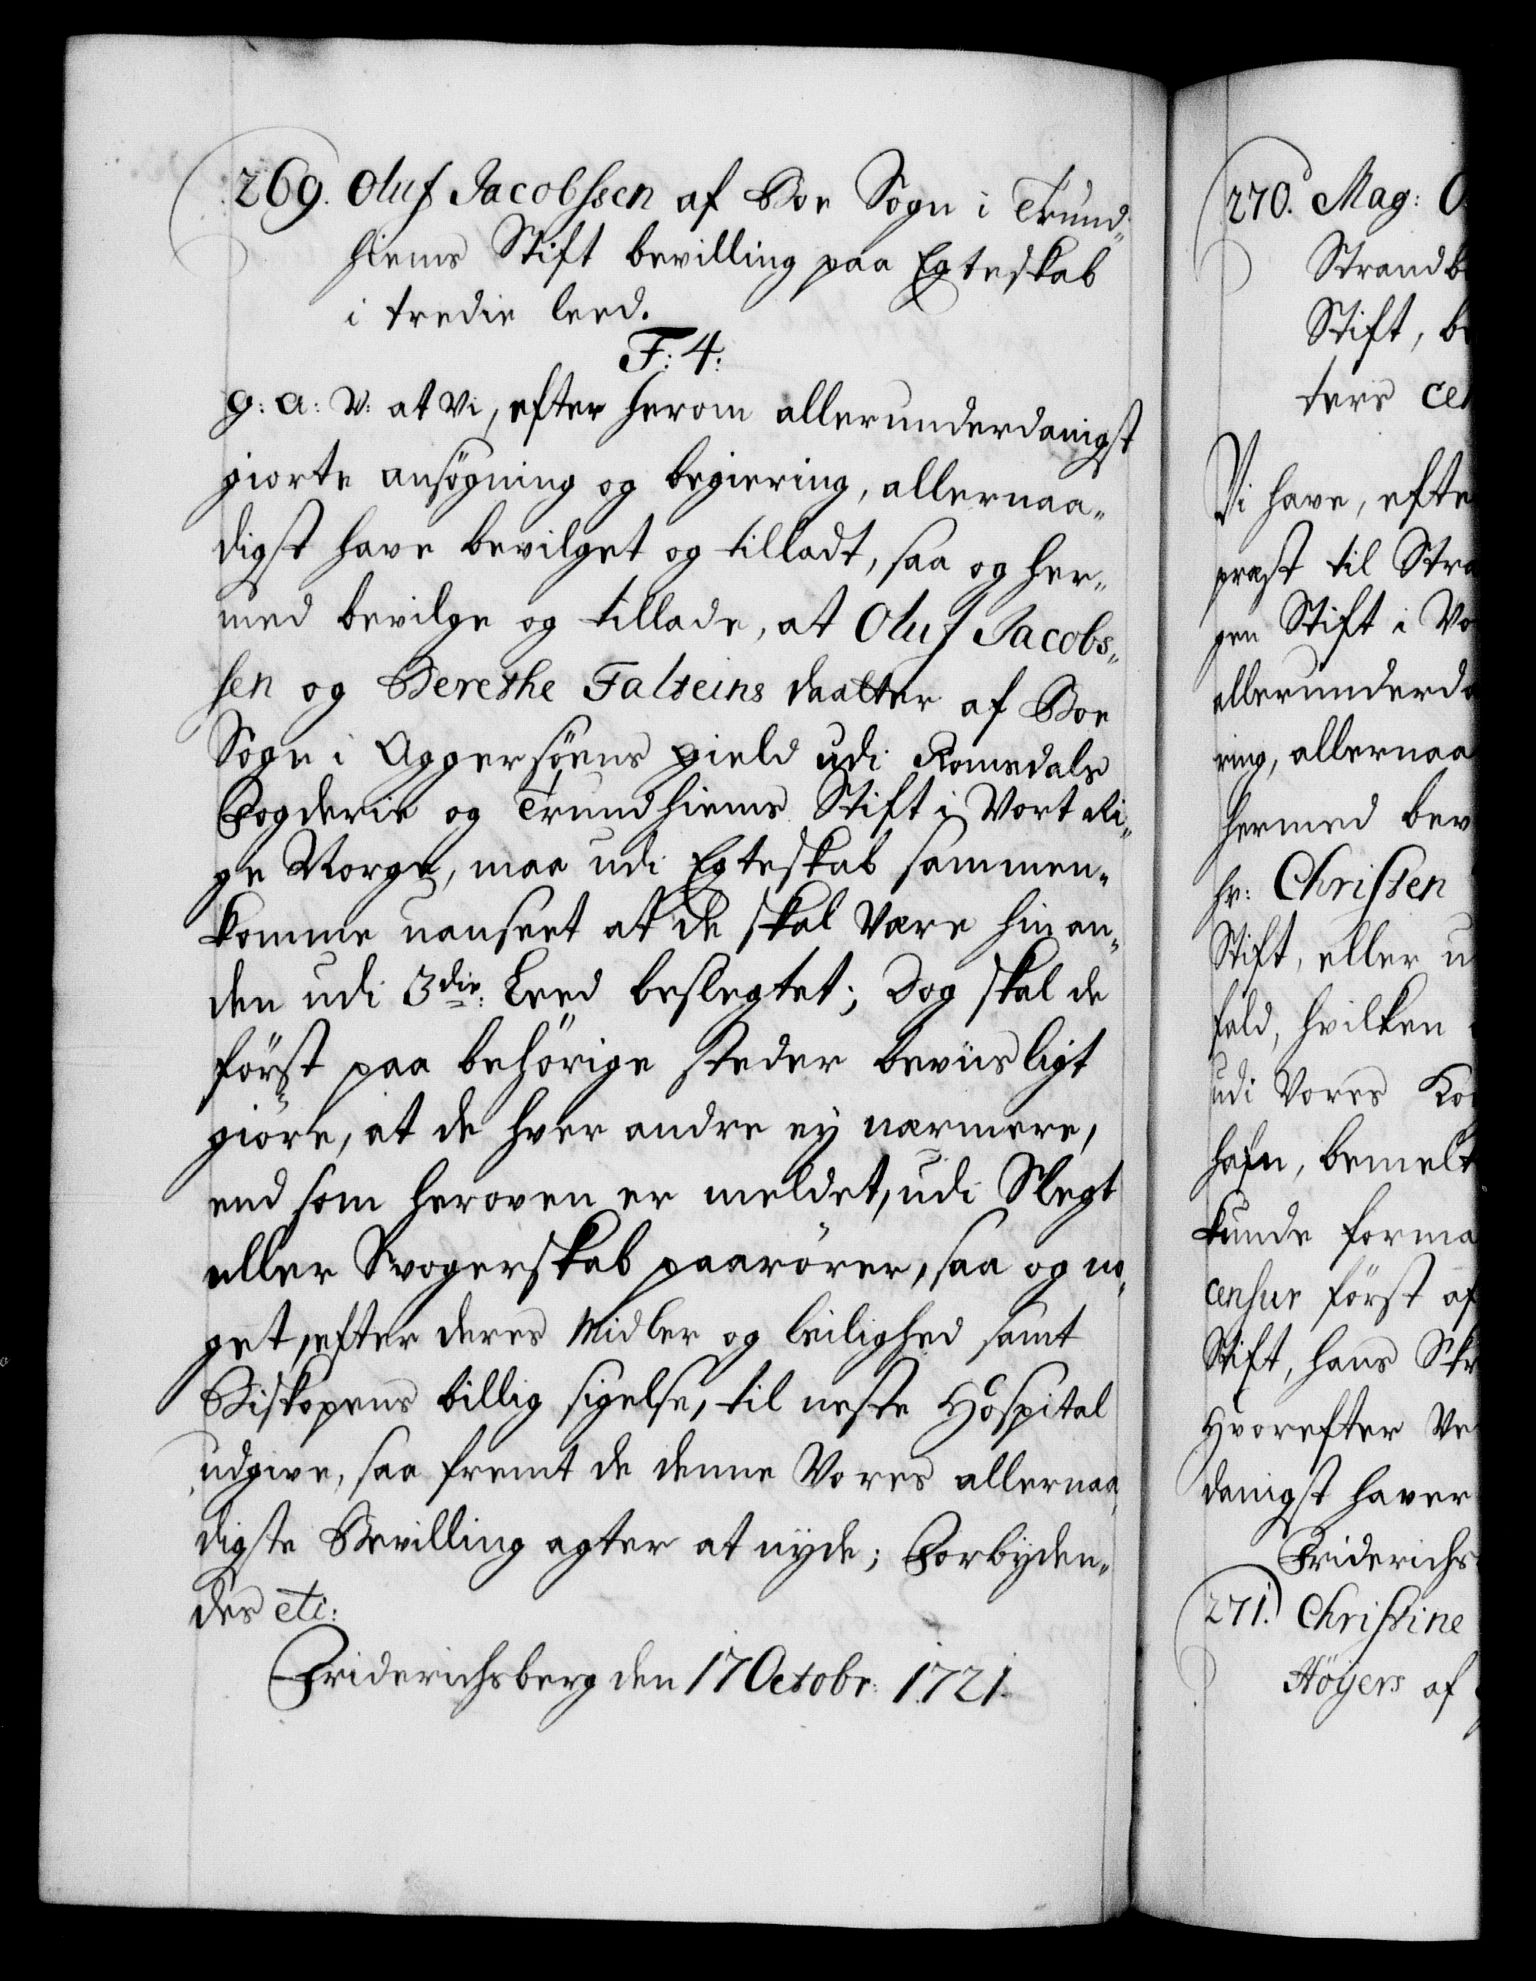 269. Oluf Jacobssen af Boe Sogn i Trund„
hiems Stift bevilling paa Egteskab
i tredie leed.
F: 4:
g: a: V: at Vi, efter herom allerunderdanigst
giorte ansögning og begiering, allernaa„
digst have bevilget og tilladt, saa og her„
med bevilge og tillade, at Oluf Jacobs„
sen og Berethe Falseins daatter af Boe
Sogn i Aggersöens gield udi Romsdals
Fogderie og Trundhiems Stift i Vort Ri„
ge Norge, maa udi Egteskab sammen„
komme uanseet at de skal være hin an„
den udi 3die: Leed beslegtet; Dog skal de
först paa behörige steder beviisligt
giöre, at de hver andre ey nærmere,
end som heroven er meldet, udi Slegt
eller Svogerskab paarörer, saa og no„
get, efter deres Midler og leilighed samt
Biskopens billig sigelse, til neste Hospital
udgive, saa fremt de denne Vores allernaa„
digste Bevilling agter at nyde; Forbyden„
des etc:
Friderichsberg den 17 Octobr: 1721.
270. Mag: O
Strandb
Stift, be
ters cen
Vi have, efte
præst til Stra
gen Stift i Vo
allerunderda
ring, allernaa
hermed bev
hr: Chrissen
Stift, eller u
fald, hvilken
udi Vores Ko
hafn, bemelt
kunde forma
censur först af
Stift, hans Skr
Hvorefter Ve
danigst haver
Friderichs
271. Christine
Höyers af